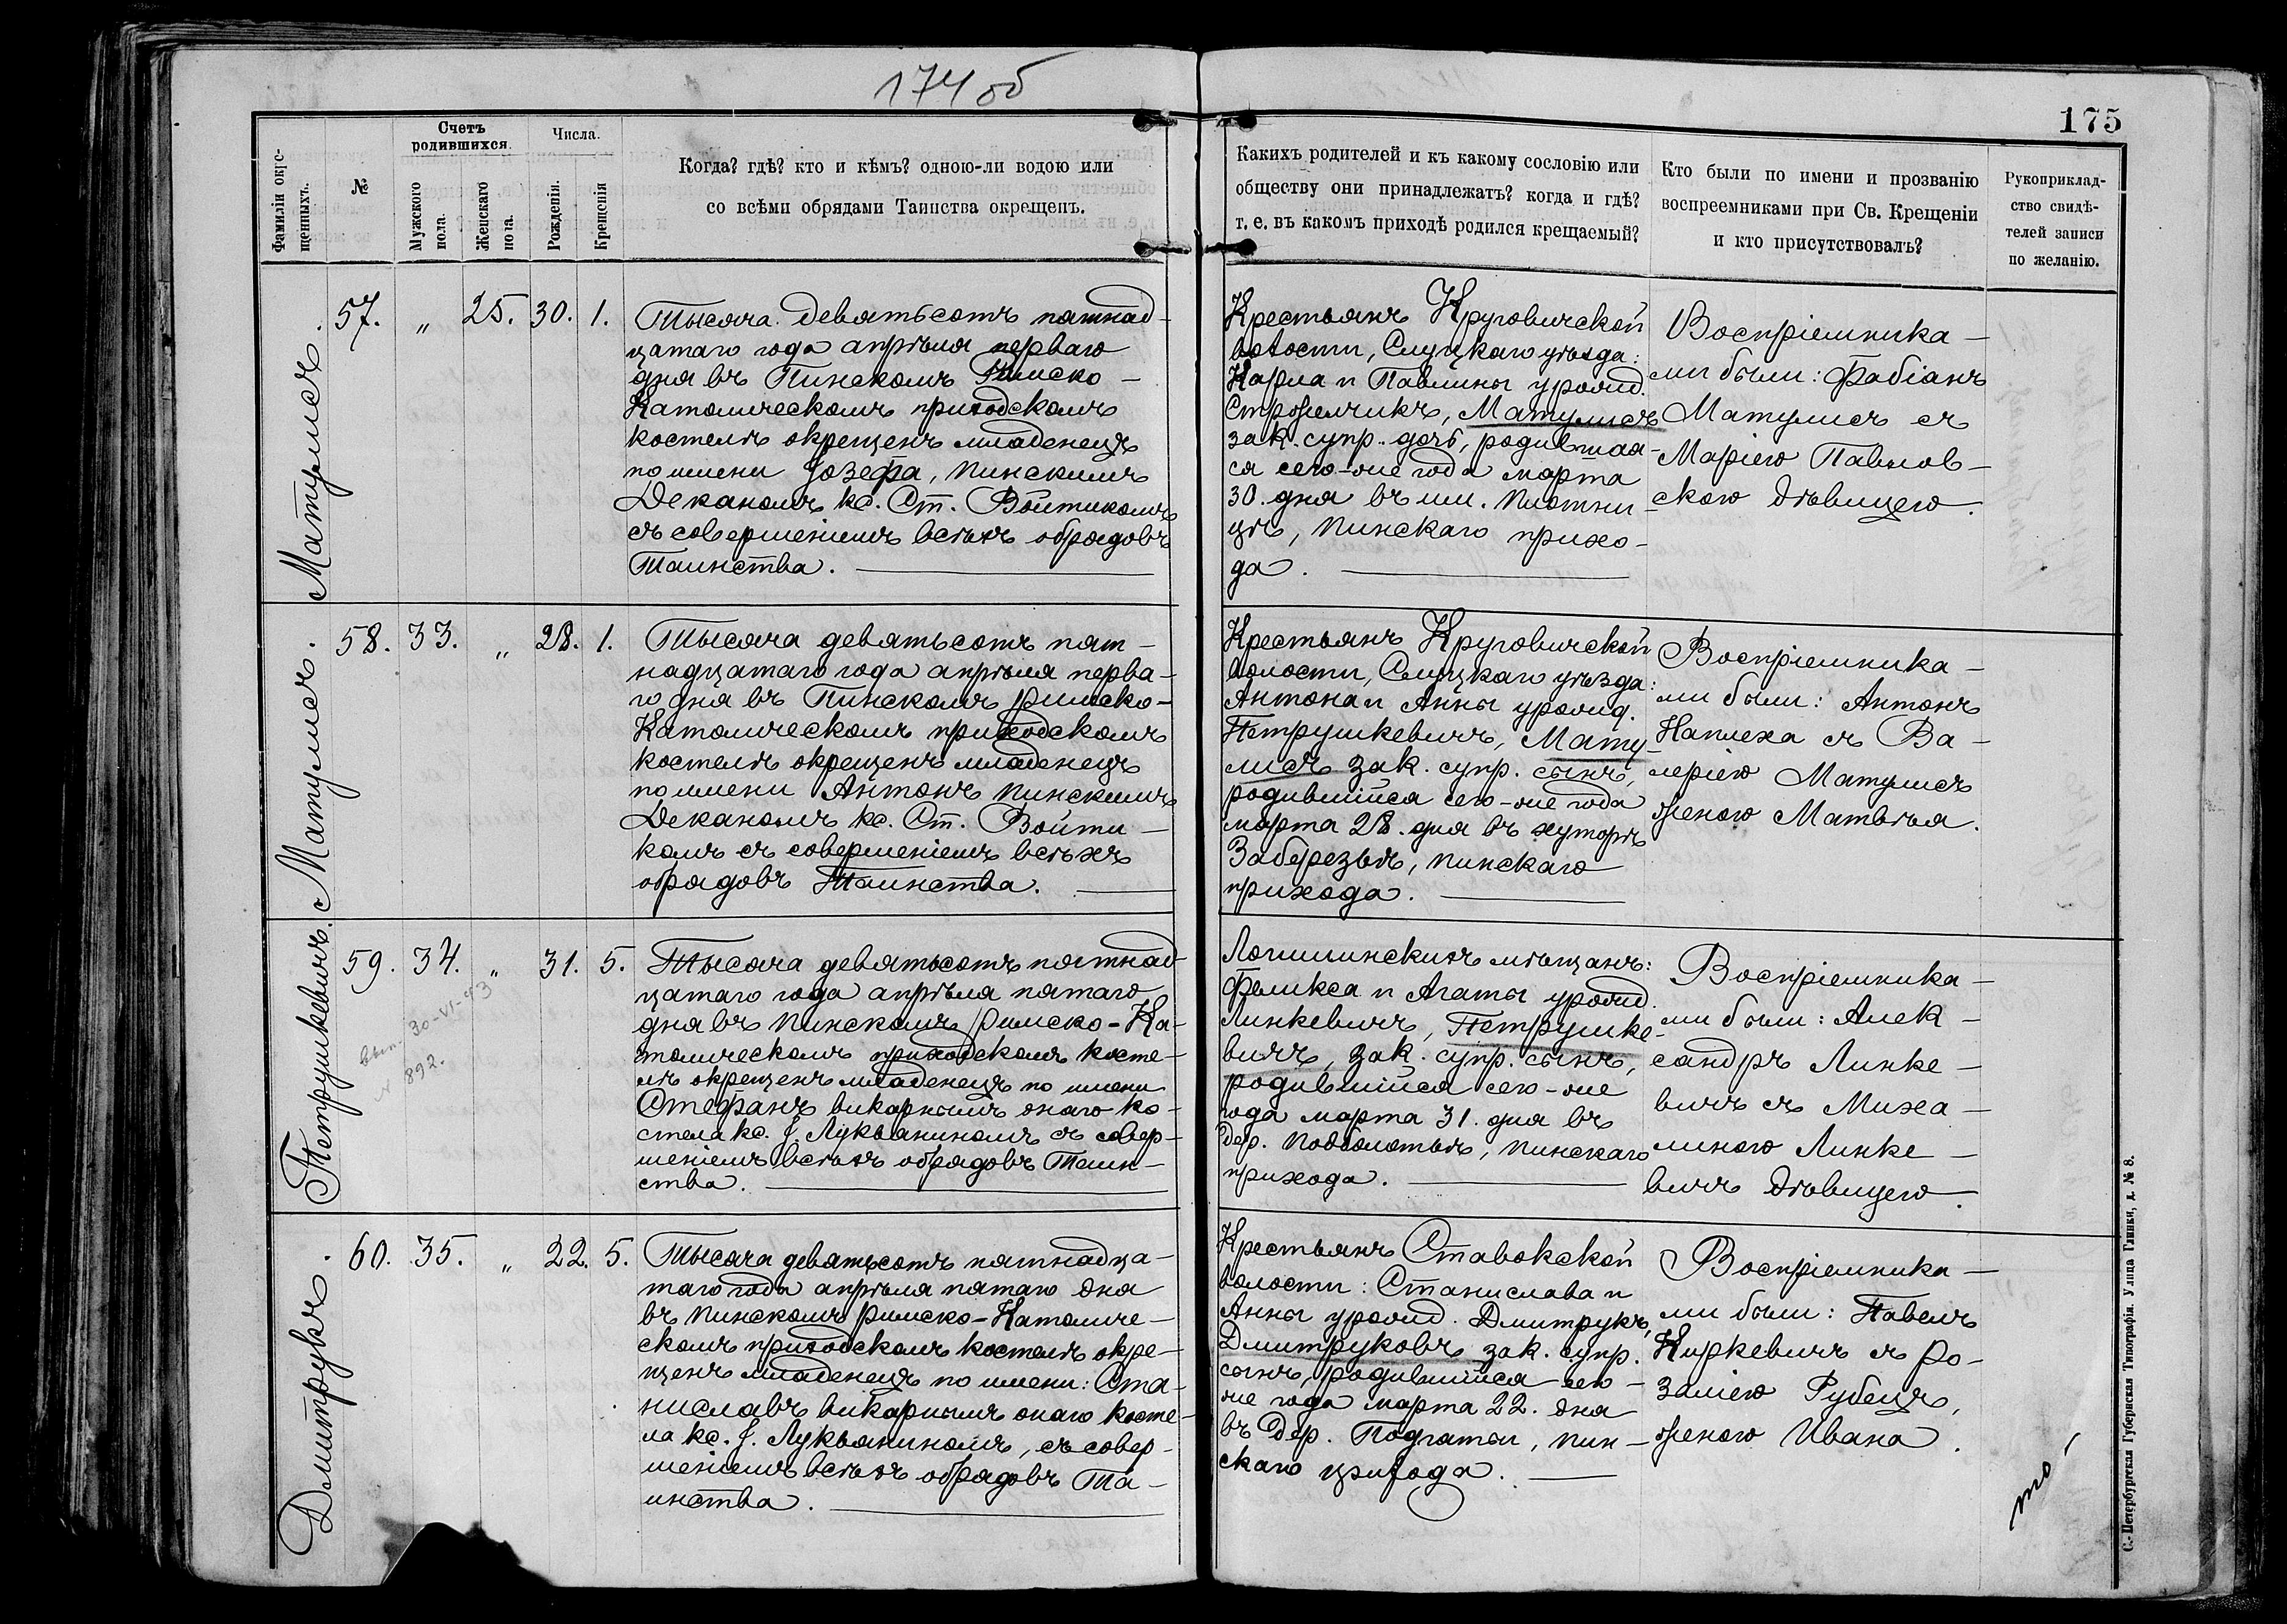 174 об
175
Фамиліи окре-
щенныхъ.
№
Счетъ
родившихся.
Мужского
пола.
Женскаго
пола.
Числа.
Рожденія.
Крещенія
Когда? гдѣ? кто и кѣмъ? одною-ли водою или
со всѣми обрядами Таинства окрещенъ.
Какихъ родителей и къ какому сословію или
обществу они принадлежатъ? когда и гдѣ?
т. е. въ какомъ приходѣ родился крещаемый?
Кто были по имени и прозванію
воспреемниками при Св. Крещеніи
и кто присутствовалъ?
Рукоприклад-
ство свидѣ-
телей записи
по желанію.
Матулисъ.
57. „ 25. 30. 1.
Тысяча девятьсотъ пятнад-
цатаго года апрѣля перваго
дня въ Пинскомъ Римско-
Католическомъ приходскомъ
костелѣ окрещенъ младенецъ
по имени Јозефа, Пинскимъ
Деканомъ кс. Ст. Войтикомъ
съ совершеніемъ всѣхъ обрядовъ
Таинства.
Крестьянъ Круговичской
волости, Слуцкаго уѣзда:
Карла и Павлины урожд.
Строжемчикъ, Матулисъ
зак. супр. дочь, родившая-
ся сего-же года марта
30. дня въ им. Плотни-
цѣ, Пинскаго прихо-
да.
Воспріемника-
ми были: Фабіанъ
Матулисъ съ
Маріею Павлов-
скою дѣвицею.
Матулисъ.
58. 33. „ 28. 1.
Тысяча девятьсотъ пят-
надцатаго года апрѣля перва-
го дня въ Пинскомъ Римско-
Католическомъ приходскомъ
костелѣ окрещенъ младенецъ
по имени Антонъ Пинскимъ
Деканомъ кс. Ст. Войти-
комъ съ совершеніемъ всѣхъ
обрядовъ Таинства.
Крестьянъ Круговичской
волости, Слуцкаго уѣзда:
Антона и Анны урожд.
Петрушкевичъ, Мату-
лисъ зак. супр. сынъ,
родившійся сего-же года
марта 28. дня въ хуторѣ
Заберезьѣ, Пинскаго
прихода.
Воспріемника-
ми были: Антонъ
Наплеха съ Ва-
леріею Матулисъ
женою Матвѣя.
Петрушкевичъ.
59. 34. „ 31. 5.
вып. 30-VI-43
№ 892.
Тысяча девятьсотъ пятнад-
цатаго года апрѣля пятаго
дня въ Пинскомъ Римско-Ка-
толическомъ приходскомъ косте-
лѣ окрещенъ младенецъ по имени
Стефанъ викарнымъ онаго ко-
стела кс. J. Лукьяниномъ съ совер-
шеніемъ всѣхъ обрядовъ Таин-
ства.
Логишинскихъ мѣщанъ:
Феликса и Агаты урожд.
Линкевичъ, Петрушке-
вичъ, зак. супр. сынъ,
родившійся сего-же
года марта 31. дня въ
дер. Подболотьѣ, Пинскаго
прихода.
Воспріемника-
ми были: Алек-
сандръ Линке-
вичъ съ Миха-
линою Линке-
вичъ дѣвицею.
Дмитрукъ.
60. 35. „ 22. 5.
Тысяча девятьсотъ пятнадца-
таго года апрѣля пятаго дня
въ Пинскомъ Римско-Католиче-
скомъ приходскомъ костелѣ окре-
щенъ младенецъ по имени: Ста-
ниславъ викарнымъ онаго косте-
ла кс. J. Лукьяниномъ, съ совер-
шеніемъ всѣхъ обрядовъ Та-
инства.
Крестьянъ Ставокской
волости: Станислава и
Анны урожд. Дмитрукъ,
Дмитруковъ зак. супр.
сынъ, родившійся сего-
же года марта 22. дня
въ дер. Подгатьи, Пин-
скаго прихода.
Воспріемника-
ми были: Павелъ
Киркевичъ съ Ро-
заліею Рубецъ,
женою Ивана.
С.-Петербургская Губернская Типографія. Улица Глинки, д. № 8.